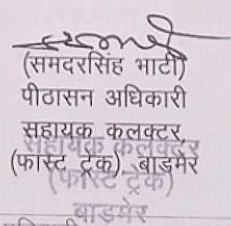 (समदरसिंह भाटी)
पीठासन अधिकारी
सहायक कलक्टर,
(फास्ट ट्रेक), बाड़मेर
सहायक कलक्टर
(फास्ट ट्रेक)
बाड़मेर